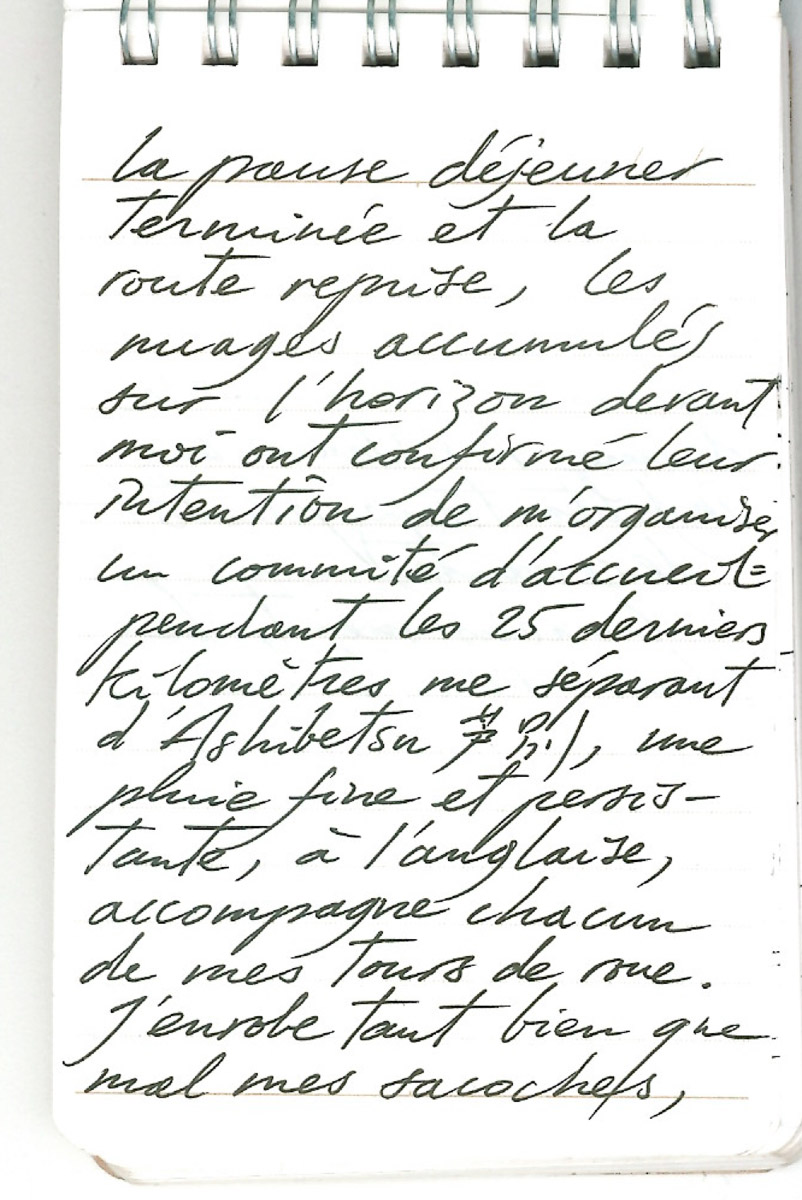 La pause déjeuner
terminée et la
route reprise, les
nuages accumulés
sur l'horizon devant
moi ont confirmé leur
intention de m'organiser
un comité d'accueil :
pendant les 25 derniers
kilomètres me séparant
d'Ashibetsu 芦別, une
pluie fine et persis-
tante, à l'anglaise,
accompagne chacun
de mes tours de roue.
J'enrobe tant bien que
mal mes sacoches,